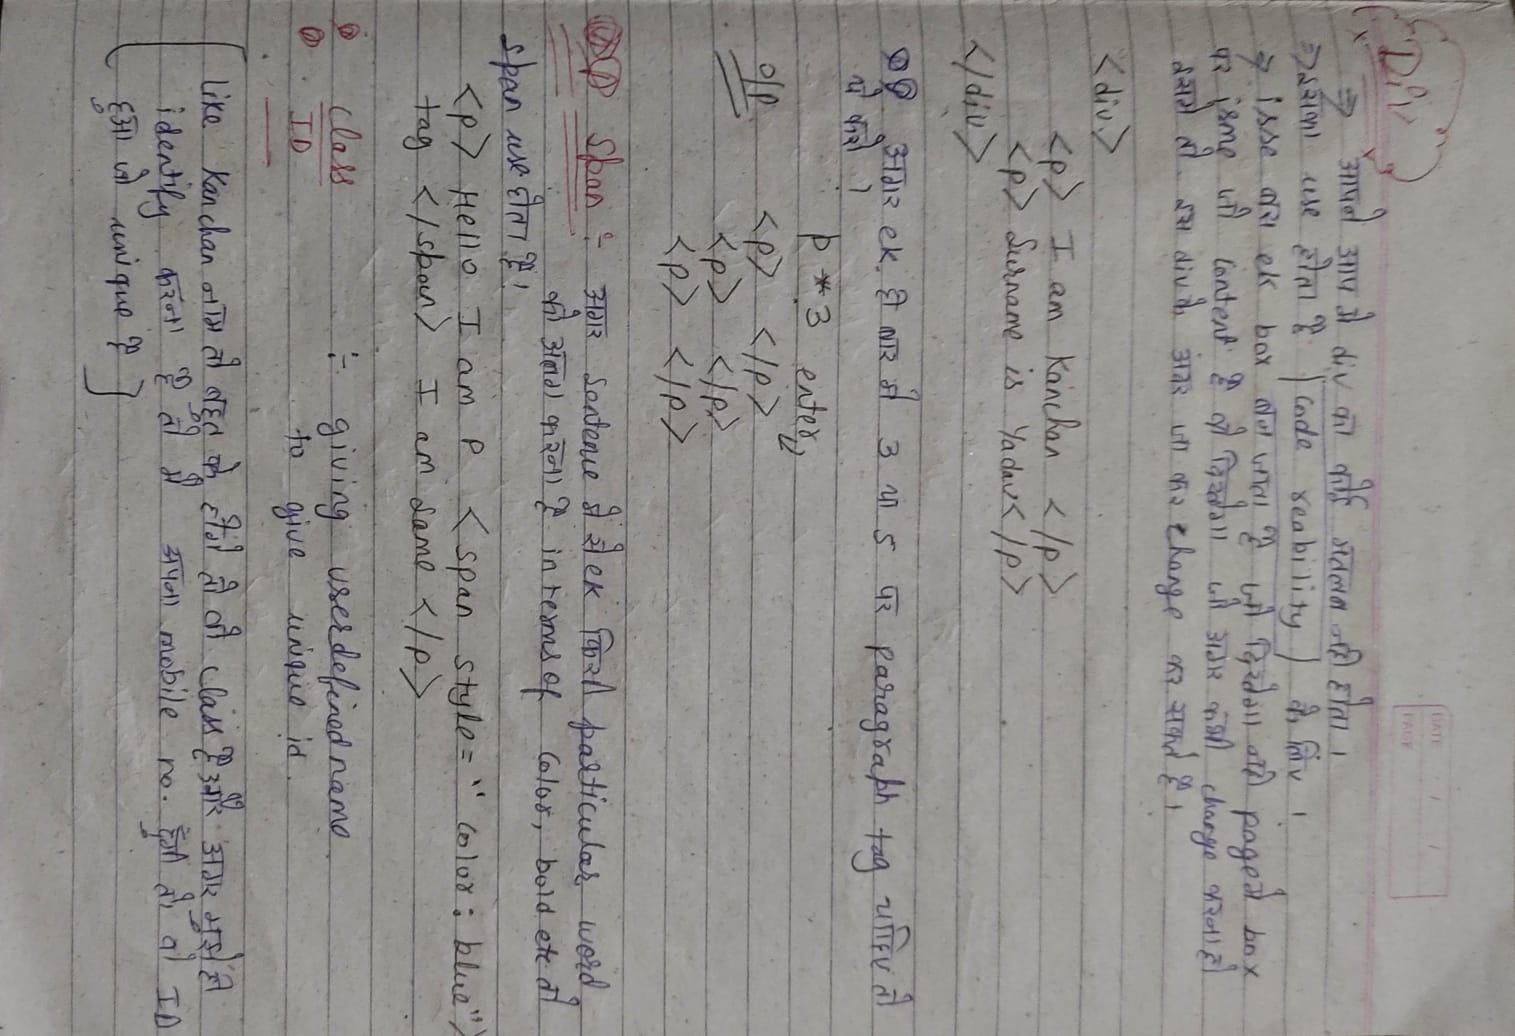 DATE / /
PAGE
Div
⇒ अपने आप में div का कोई मतलब नहीं होता।
⇒ इसका use होता है (code reability) के लिए।
⇒ isse बस ek box बन जाता है जो दिखेगा नहीं page में box
पर isme जो content है वो दिखेगा जो अगर कभी change करना हो
इसमें तो हम div के अंदर जा कर change कर सकते हैं।
<div>
<p> I am Kanchan </p>
<p> Surname is Yadav </p>
</div>
अगर ek ही बार में 3 या 5 पर paragraph tag चाहिए तो
ये करो।
p*3 enter
o/p <p> </p>
<p> </p>
<p> </p>
Span :- अगर Sentence में से ek किसी particular word
को अलग करना है in terms of color, bold etc तो
span use होता है।
<p> Hello I am P <span style="color: blue">
tag </span> I am same </p>
class :- giving userdefined name
ID to give unique id.
(like Kanchan नाम के बहुत से होंगे तो वो class है और अगर मुझे ही
identify करना है तो मैं अपना mobile no. दूंगी तो वो ID
हुआ जो unique है)